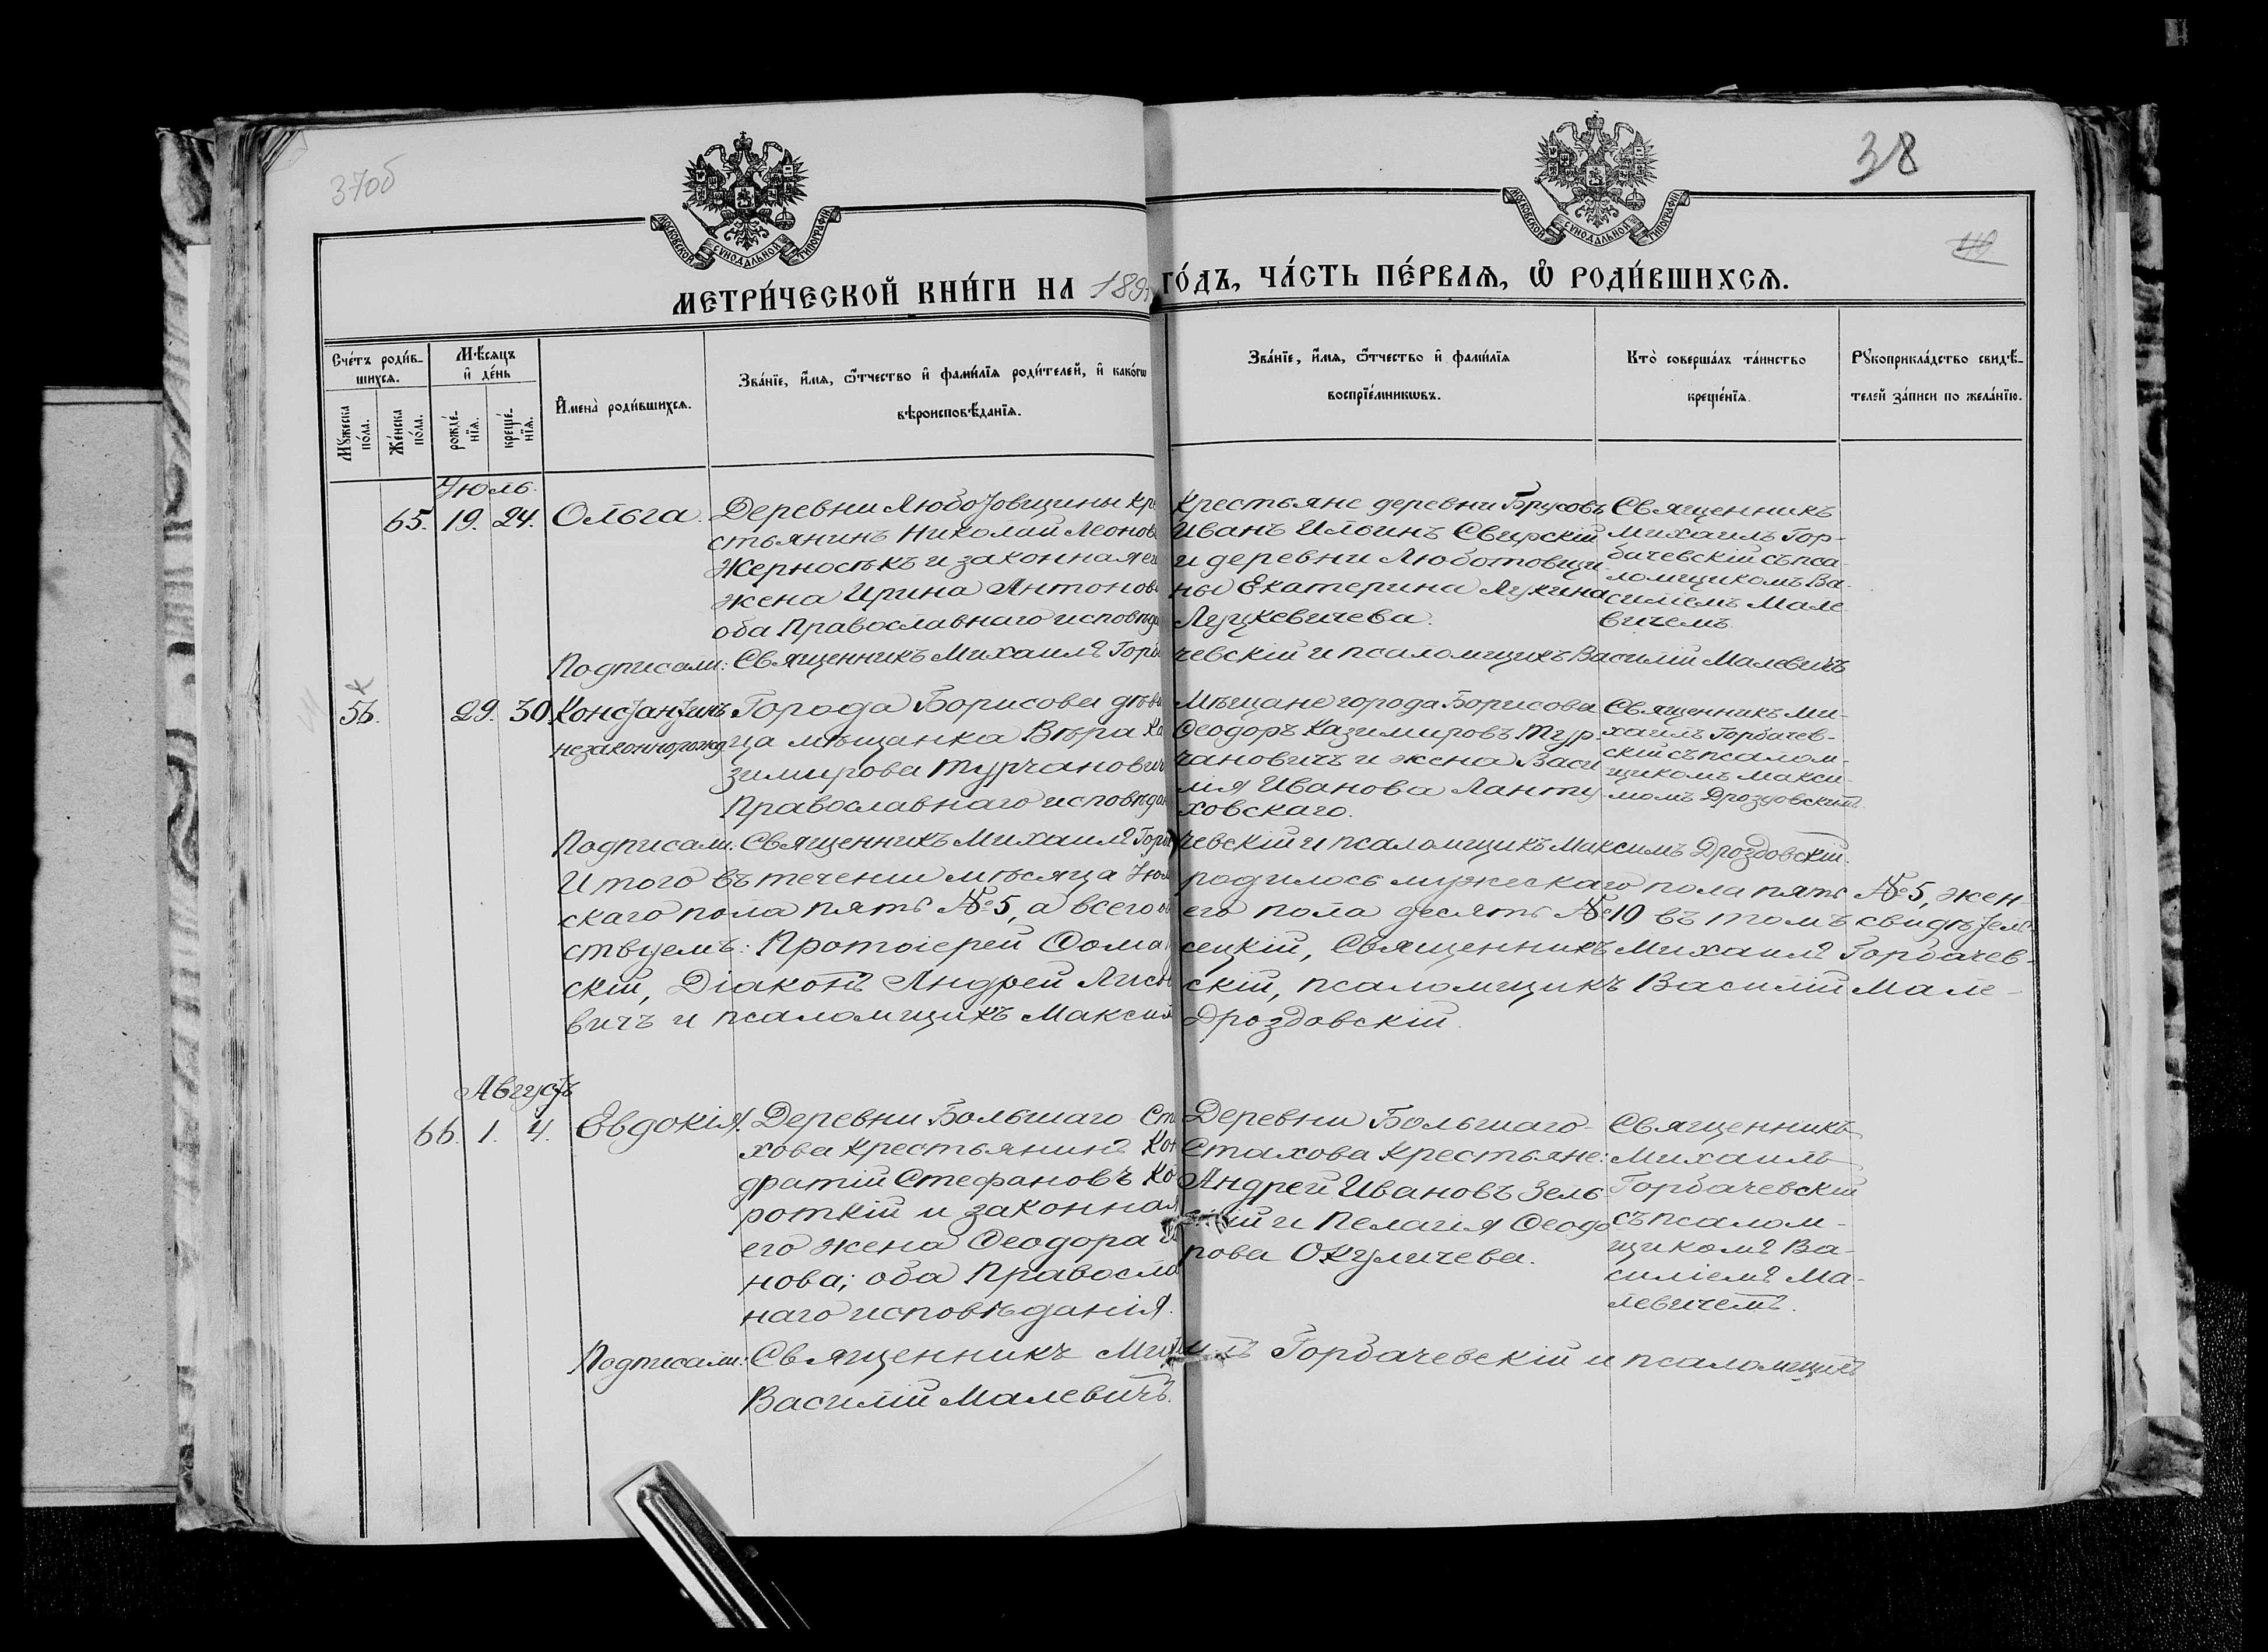 37об
38
МОСКОВСКОЙ СУНОДАЛЬНОЙ ТИПОГРАФІИ
МОСКОВСКОЙ СУНОДАЛЬНОЙ ТИПОГРАФІИ
МЕТРИ́ЧЕСКОЙ КНИ́ГИ НА 189
ГО́ДЪ, ЧА́СТЬ ПЕ́РВАѦ, Ѡ РОДИ́ВШИХСѦ.
Сче́тъ роди́в-
шихсѧ.
Мꙋ́жеска
по́ла.
Же́нска
по́ла.
Мѣ́сѧцъ
и҆ де́нь
рожде́-
нїѧ.
креще́-
нїѧ.
И҆мена̀ роди́вшихсѧ.
Зва́нїе, и҆́мѧ, ѻ҆́тчество и҆ фами́лїѧ роди́телей, и҆ како́гѡ
вѣроисповѣ́данїѧ.
Зва́нїе, и҆́мѧ, ѻ҆́тчество и҆ фами́лїѧ
воспрїе́мникѡвъ.
Кто̀ соверша́лъ та́инство
креще́нїѧ.
Рꙋкоприкла́дство свидѣ́-
телей за́писи по жела́нїю.
Іюль.
65. 19. 24. Ольга.
Деревни Люботовщины кре
стьянинъ Николай Леонов
Жерносѣкъ и законная ег
жена Ирина Антонов
оба Православнаго исповѣда
Крестьяне деревни Брусовъ
Иванъ Ильинъ Свирскій
и деревни Люботовщи
ны Екатерина Лукина
Луцкевичева.
Священникъ
Михаилъ Гор-
бачевскій съ пса-
ломщикомъ Ва-
силіемъ Мале
вичемъ
Подписали: Священникъ Михаилъ Горба
чевскій и псаломщикъ Василій Малевичъ
56. 29. 30. Константинъ
незаконнорожд
Города Борисова дѣви
ца мѣщанка Вѣра Ка
зимирова Турчанович
Православнаго исповѣдан
Мѣщане города Борисова
Ѳеодоръ Казимировъ Тур-
чановичъ и жена Васи
лія Иванова Ланту
ховскаго.
Священникъ Ми-
хаилъ Горбачев-
скій съ псалом-
щикомъ Макси-
момъ Дроздовскимъ
Подписали: Священникъ Михаилъ Горба
чевскій и псаломщикъ Максимъ Дроздовскій.
Итого въ теченіи мѣсяца Іюл
родилось мужескаго пола пять №5, жен-
скаго пола пять №5, а всего об
его пола десять №10 въ томъ свидѣтель
ствуемъ: Протоіерей Ѳома
сецкій, Священникъ Михаилъ Горбачев-
скій, Діаконъ Андрей Лисов
скій, псаломщикъ Василій Мале-
вичъ и псаломщикъ Максим
Дроздовскій.
Августъ
66. 1. 4. Евдокія.
Деревни Большаго Ста
хова крестьянинъ Кон
дратій Стефановъ Ко
роткій и законная
его жена Ѳеодора
нова; оба Правосла
наго исповѣданія.
Деревни Большаго-
Стахова крестьяне:
Андрей Ивановъ Зель
кій и Пелагія Ѳеодо
рова Окуличева.
Священникъ
Михаилъ
Горбачевскій
съ псалом-
щикомъ Ва-
силіемъ Ма-
левичемъ.
Подписали: Священникъ Миха
илъ Горбачевскій и псаломщикъ
Василій Малевичъ.